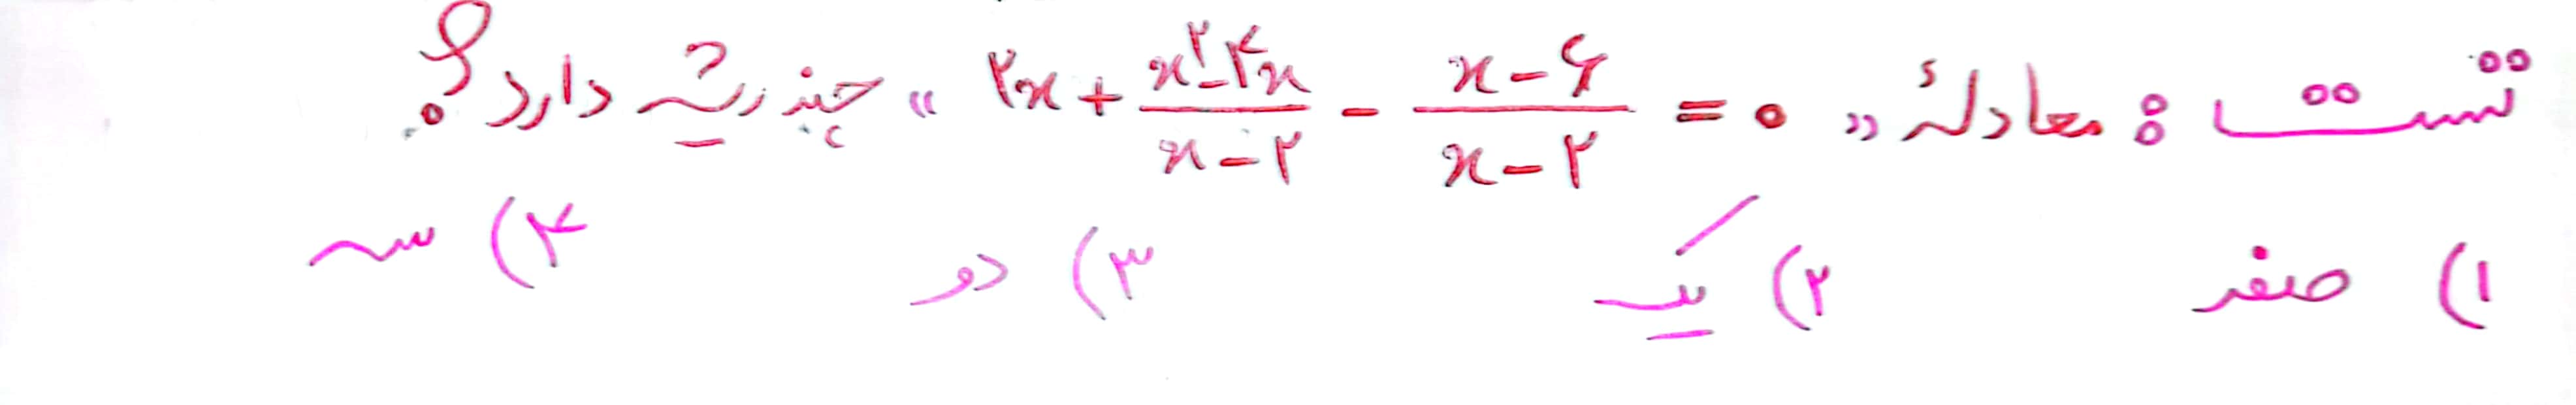 تست : معادلهٔ « ۲x + (x^۲ - ۴x)/(x - ۲) - (x - ۶)/(x - ۲) = ۰ » چند ریشه دارد ؟
۱) صفر ۲) یک ۳) دو ۴) سه